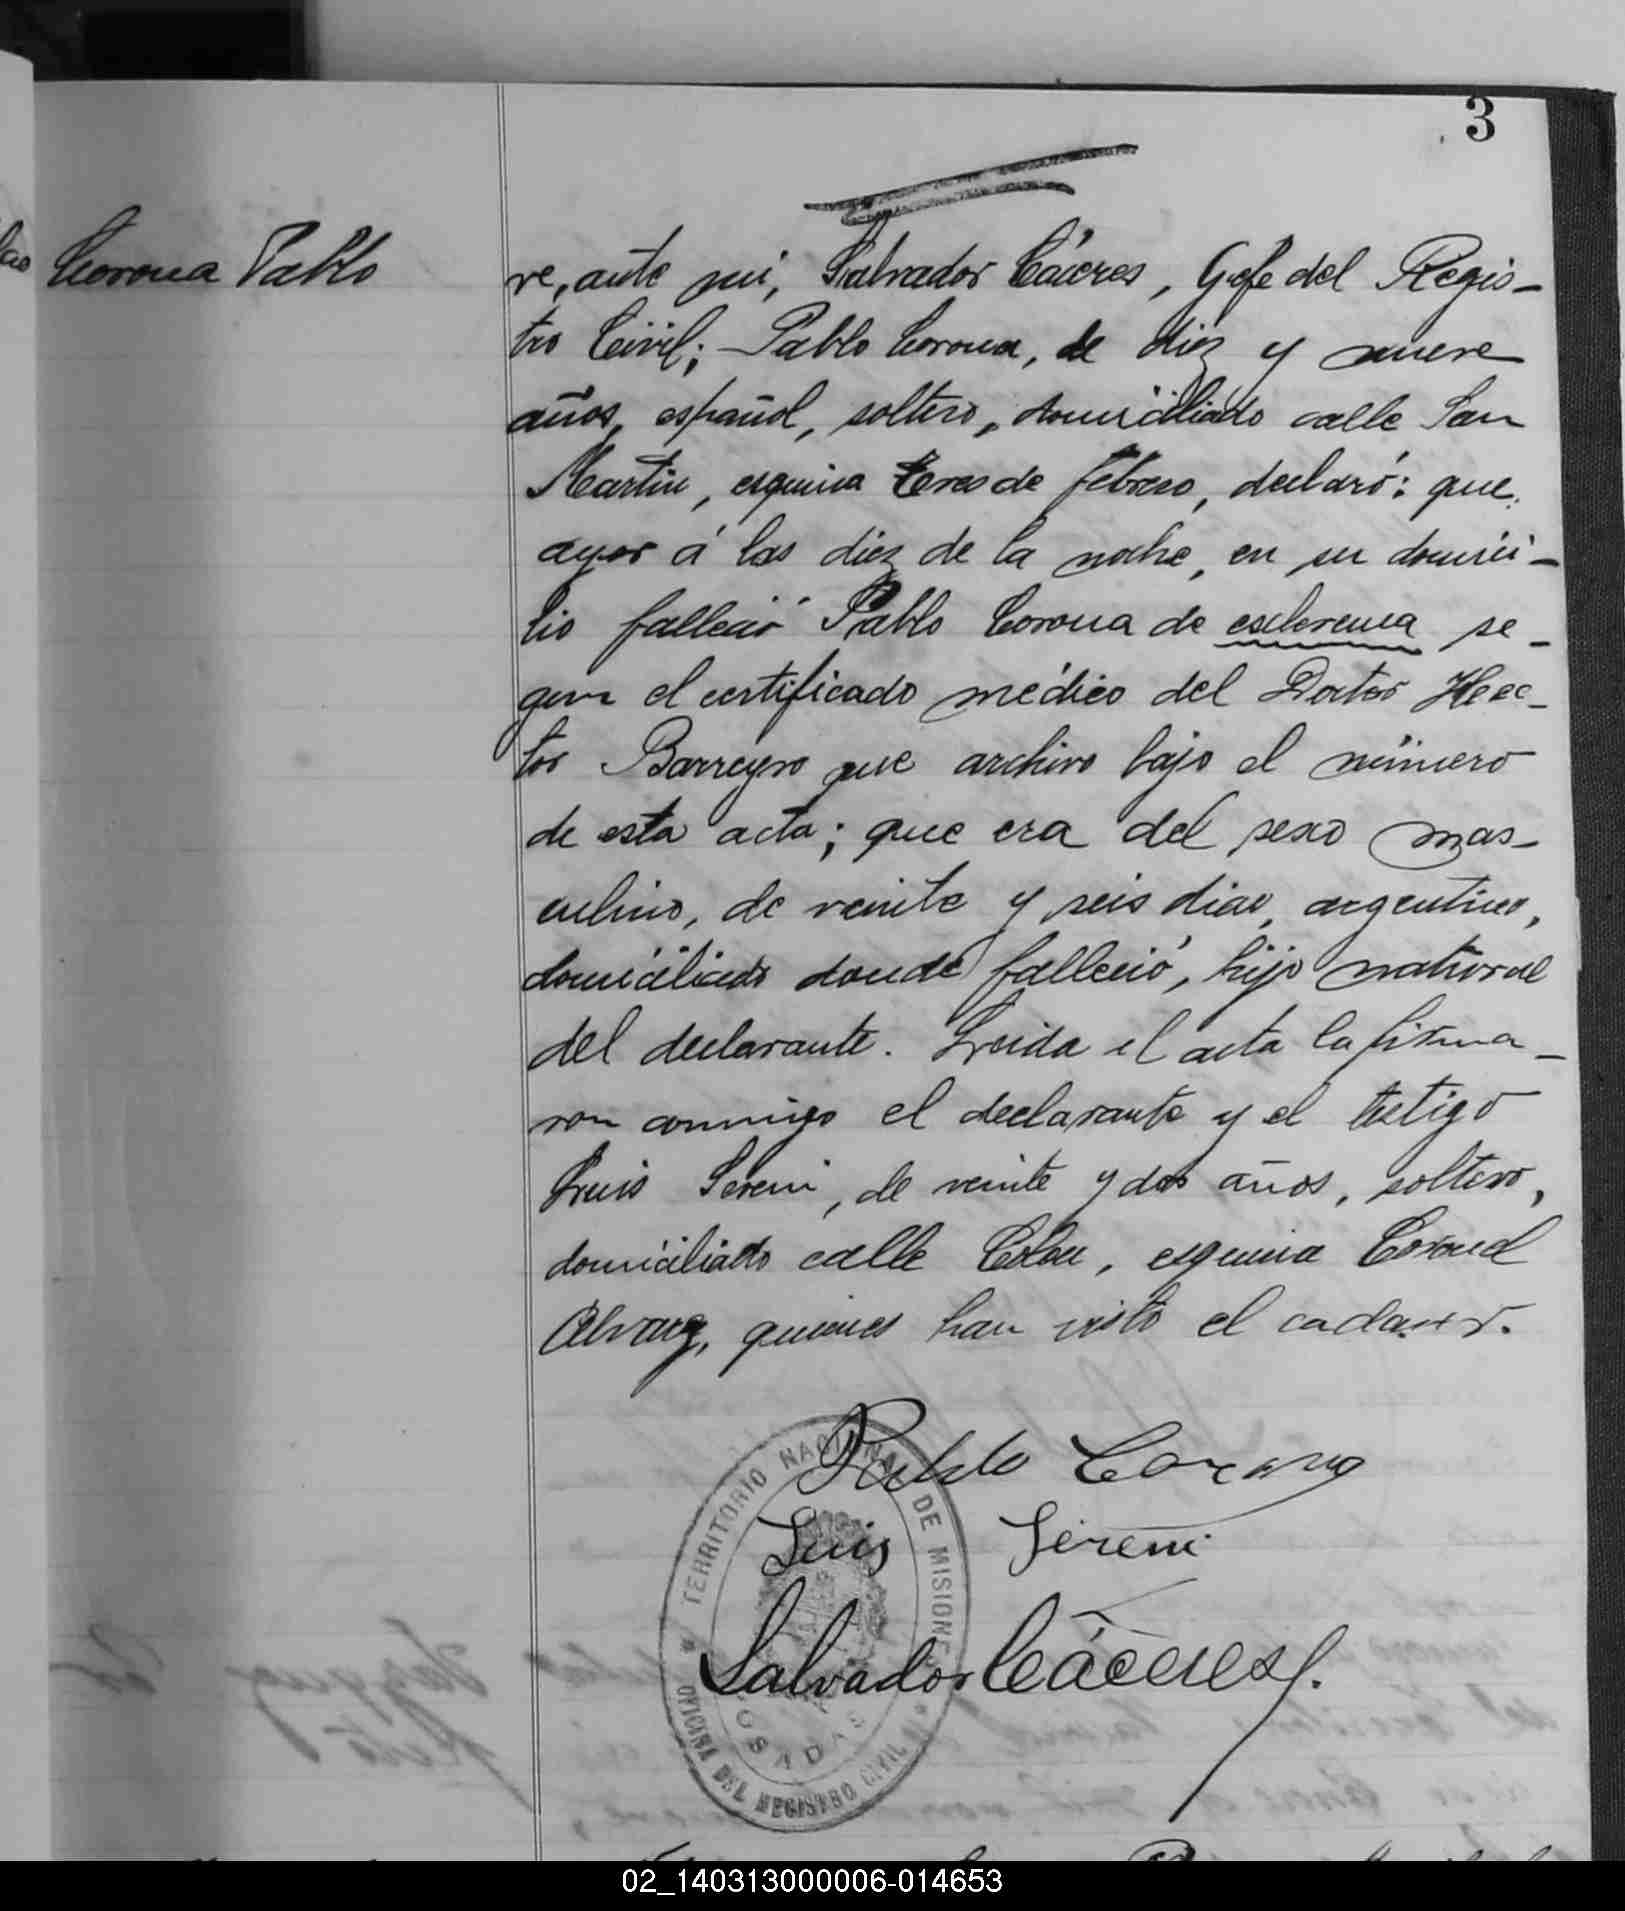 3
Corona Pablo
ve, ante mi, Salvador Cáceres, Gefe del Regis-
tro Civil; Pablo Corona, de diez y nueve
años, español, soltero, domiciliado calle San
Martin, esquina Tres de febrero, declaró: que
ayer á las diez de la noche, en su domici-
lio falleció Pablo Corona de esclerema se-
gun el certificado médico del Doctor Hec-
tor Barreyro que archivo bajo el número
de esta acta; que era del sexo mas-
culino, de veinte y seis dias, argentino,
domiciliado donde falleció, hijo natural
del declarante. Leida el acta la firma-
ron conmigo el declarante y el testigo
Luis Sereni, de veinte y dos años, soltero,
domiciliado calle Colon, esquina Coronel
Alvarez, quienes han visto el cadaver.
Pablo Corona
Luis Sereni
Salvador Cáceres
TERRITORIO NACIONAL DE MISIONES
POSADAS
OFICINA DEL REGISTRO CIVIL
02_140313000006-014653